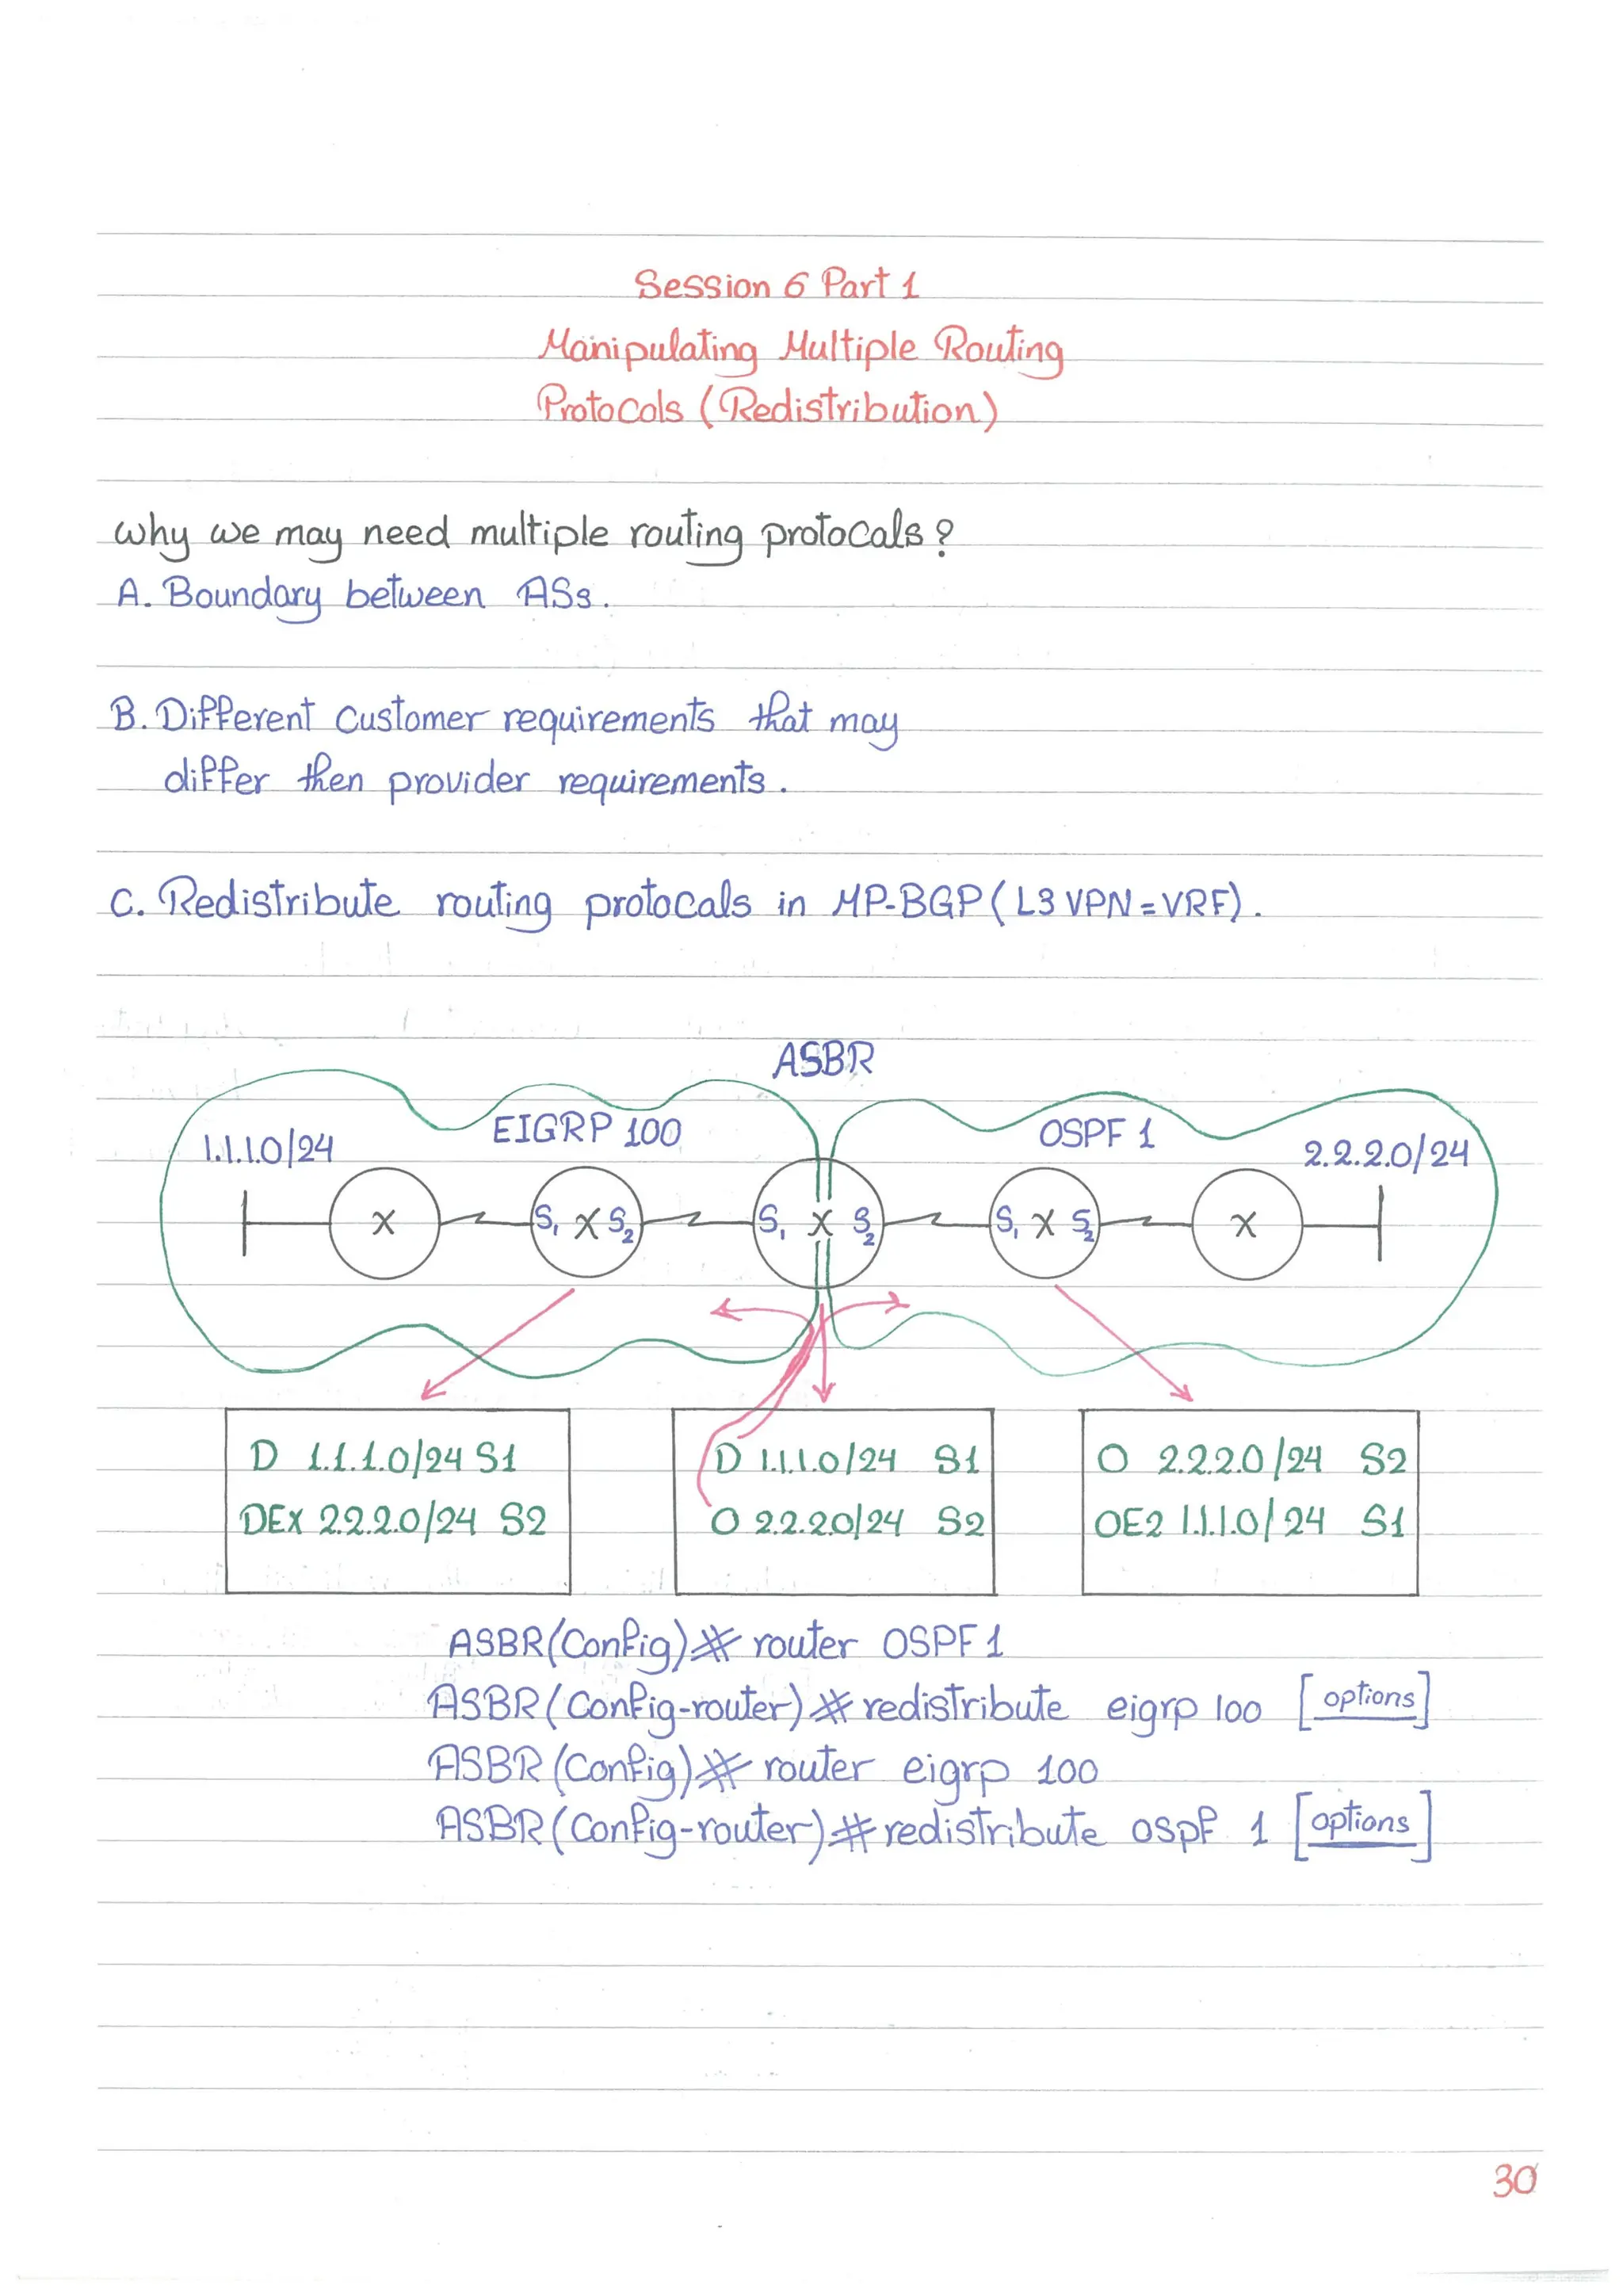 Session 6 Part 1
Manipulating Multiple Routing
Protocals (Redistribution)
why we may need multiple routing protocals?
A. Boundary between ASs.
B. Different Customer requirements that may
differ then provider requirements.
C. Redistribute routing protocals in MP-BGP (L3 VPN = VRF).
ASBR
EIGRP 100
OSPF 1
1.1.1.0/24
2.2.2.0/24
X S1 X S2 S1 X S2 S1 X S2 X
D 1.1.1.0/24 S1
DEX 2.2.2.0/24 S2
D 1.1.1.0/24 S1
O 2.2.2.0/24 S2
O 2.2.2.0/24 S2
OE2 1.1.1.0/24 S1
ASBR(Config)# router OSPF 1
ASBR(Config-router)# redistribute eigrp 100 [options]
ASBR(Config)# router eigrp 100
ASBR(Config-router)# redistribute ospf 1 [options]
30